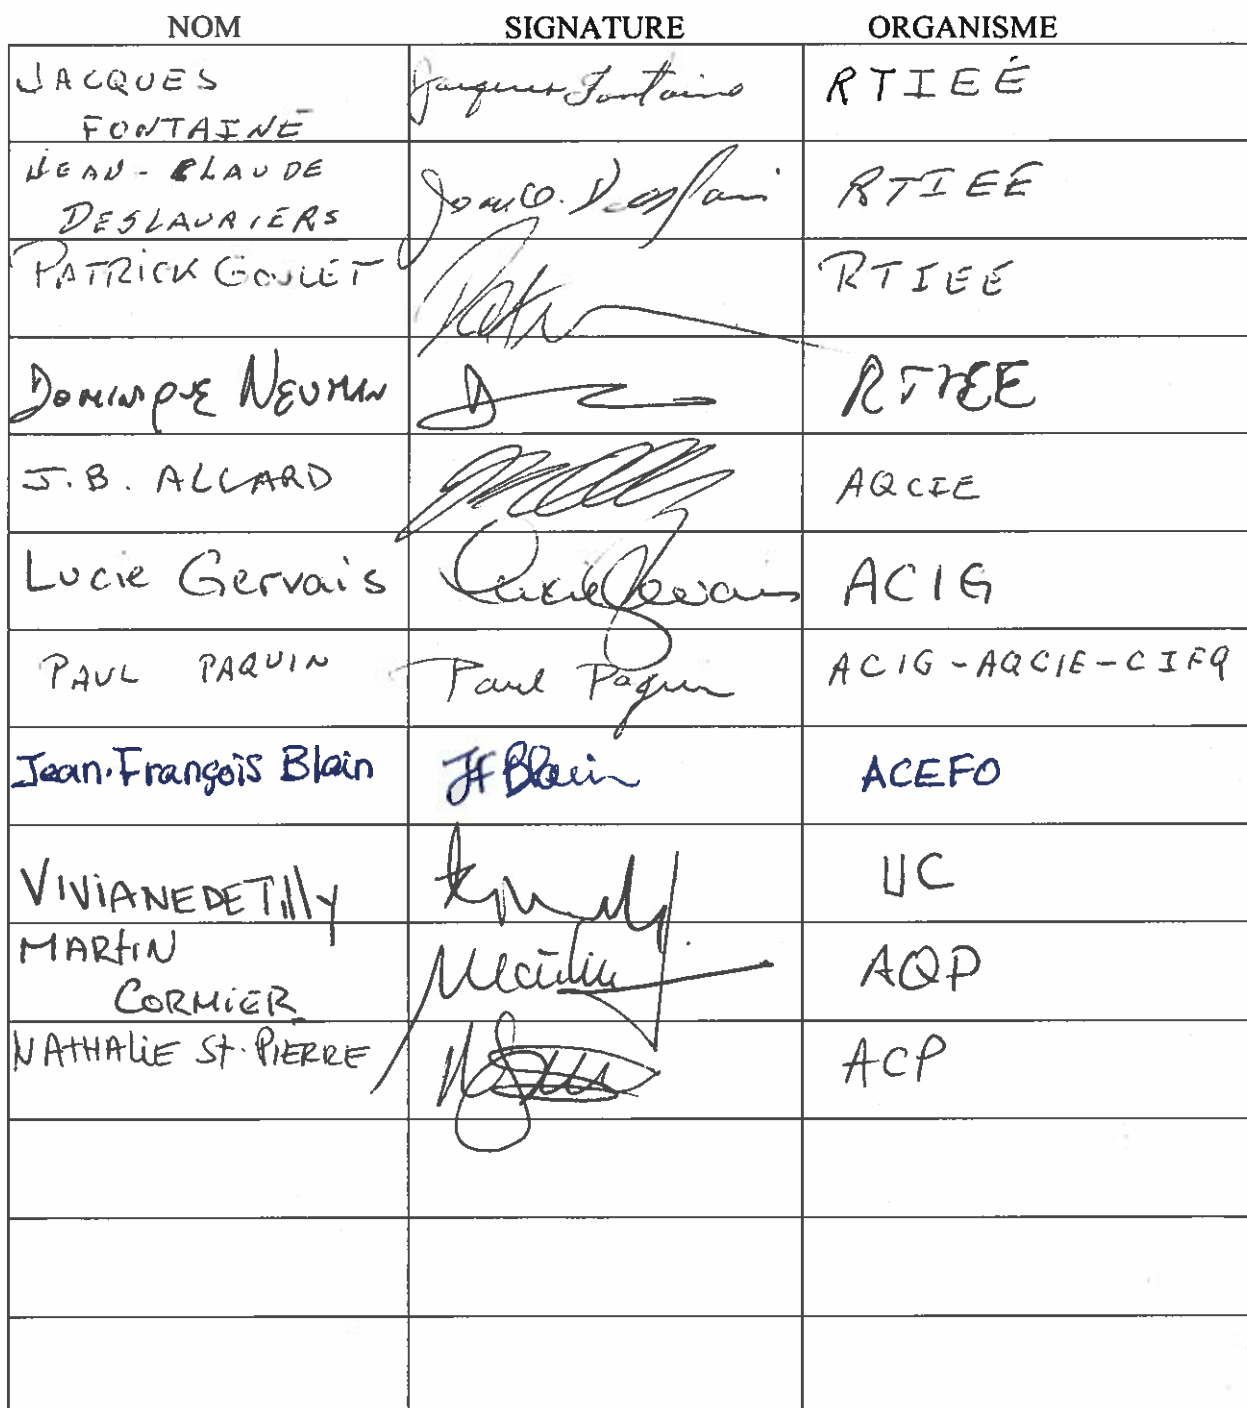 NOM SIGNATURE ORGANISME
JACQUES
FONTAINE Jacques Fontaine RTIEÉ
JEAN-CLAUDE
DESLAURIERS RTIEÉ
PATRICK GOULET RTIEÉ
DOMINIQUE NEUMAN RTIEÉ
J.B. ALLARD AQCIE
Lucie Gervais Lucie Gervais ACIG
PAUL PAQUIN Paul Paquin ACIG-AQCIE-CIFQ
Jean-François Blain JF Blain ACEFO
VIVIANE DE TILLY UC
MARTIN
CORMIER AQP
NATHALIE St-PIERRE ACP